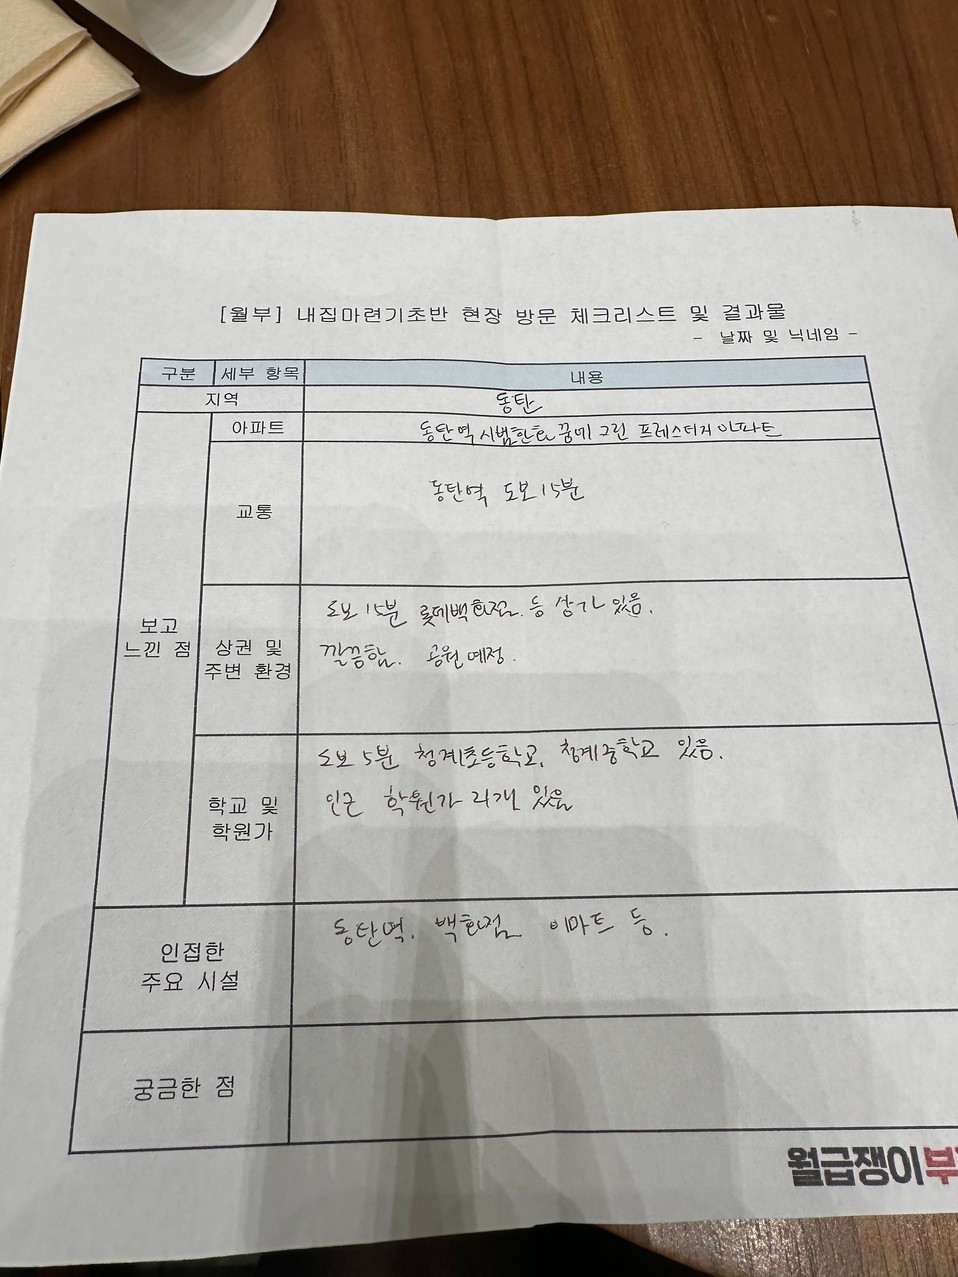 [월부] 내집마련기초반 현장 방문 체크리스트 및 결과물
- 날짜 및 닉네임 -
구분 세부 항목 내용
지역 동탄
아파트 동탄역 시범한화 꿈에 그린 프레스티지 아파트
교통 동탄역 도보 15분
보고
느낀 점
상권 및
주변 환경
도보 15분 롯데백화점. 등 상가 있음.
깔끔함. 공원 예정.
학교 및
학원가
도보 5분 청계초등학교, 청계중학교 있음.
인근 학원가 2개 있음
인접한
주요 시설
동탄역. 백화점 이마트 등.
궁금한 점
월급쟁이부